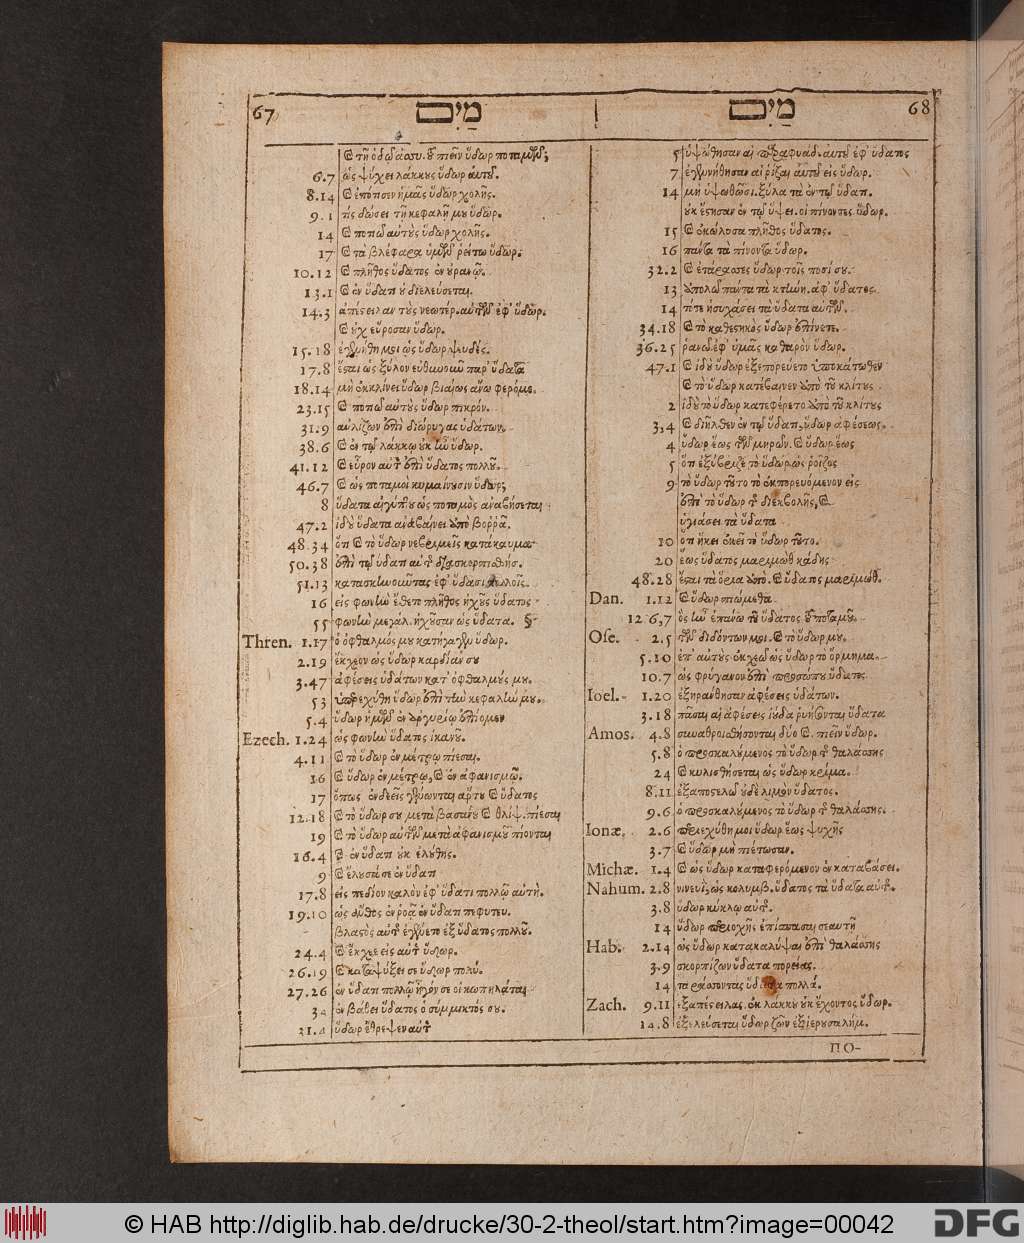 67 מַיִם
מַיִם 68
καὶ τῇ ὁδῷ ἀσσυ. τοῦ πιεῖν ὕδωρ ποταμῶν;
6.7 ὡς ψύχει λάκκος ὕδωρ αὐτοῦ.
8.14 καὶ ἐπότισεν ἡμᾶς ὕδωρ χολῆς.
9.1 τίς δώσει τῇ κεφαλῇ μου ὕδωρ.
14 καὶ ποτιῶ αὐτοὺς ὕδωρ χολῆς.
17 καὶ τὰ βλέφαρα ὑμῶν ῥείτω ὕδωρ.
10.12 καὶ πλῆθος ὕδατος ἐν οὐρανῷ.
13.1 καὶ ἐν ὕδατι οὐ διελεύσεται.
14.3 ἀπέστειλαν τοὺς νεωτέρ. αὐτῶν ἐφ' ὕδωρ.
καὶ οὐχ εὕροσαν ὕδωρ.
15.18 ἐγενήθη μοι ὡς ὕδωρ ψευδές.
17.8 ἔσται ὡς ξύλον εὐθηνοῦν παρ' ὕδατα
18.14 μὴ ἐκκλίνει ὕδωρ βιαίως ἄνω φερόμε.
23.15 καὶ ποτιῶ αὐτοὺς ὕδωρ πικρόν.
31.9 αὐλίζων ἐπὶ διώρυγας ὑδάτων.
38.6 καὶ ἐν τῷ λάκκῳ οὐκ ἦν ὕδωρ.
41.12 καὶ εὗρον αὐτὸν ἐπὶ ὕδατος πολλοῦ.
46.7 καὶ ὡς ποταμοὶ κυμαίνουσιν ὕδωρ;
8 ὕδατα αἰγύπτου ὡς ποταμὸς ἀναβήσεται
47.2 ἰδοὺ ὕδατα ἀναβαίνει ἀπὸ βορρᾶ.
48.34 ὅτι καὶ τὸ ὕδωρ νεβριμεὶς κατάκαυμα
50.38 ἐπὶ τῷ ὕδατι αὐτῆς
51.13 κατασκηνοῦντας ἐφ' ὕδασι πολλοῖς.
16 εἰς φωνὴν ἔθετο πλῆθος ἤχους ὕδατος
55 φωνὴν μεγάλ. ἠχοῦσαν ὡς ὕδατα. §
Thren. 1.17 ὁ ὀφθαλμός μου κατήγαγεν ὕδωρ.
2.19 ἔκχεον ὡς ὕδωρ καρδίαν σου
3.47 ἀφέσεις ὑδάτων κατ' ὀφθαλμούς μου.
53 ὑπερεχύθη ὕδωρ ἐπὶ τὴν κεφαλήν μου.
5.4 ὕδωρ ἡμῶν ἐν ἀργυρίῳ ἐπίομεν
Ezech. 1.24 ὡς φωνὴν ὕδατος ἱκανοῦ.
4.11 καὶ τὸ ὕδωρ ἐν μέτρῳ πίεσαι.
16 καὶ ὕδωρ ἐν μέτρῳ, καὶ ἐν ἀφανισμῷ.
17 ὅπως ἐνδεεῖς γένωνται ἄρτου καὶ ὕδατος
12.18 καὶ τὸ ὕδωρ σου μετὰ βασάνου καὶ θλίψ. πίεσαι
19 καὶ τὸ ὕδωρ αὐτῶν μετὰ ἀφανισμοῦ πίονται
16.4 καὶ ἐν ὕδατι οὐκ ἐλούθης.
9 καὶ ἔλουσά σε ἐν ὕδατι
17.8 εἰς πεδίον καλὸν ἐφ' ὕδατι πολλῷ αὐτή.
19.10 ὡς ἄνθος ἐν ῥοᾷ ἐν ὕδατι πεφυτευ.
βλαστὸς αὐτῆς ἐγένετο ἐξ ὕδατος πολλοῦ.
24.4 καὶ ἔκχεε εἰς αὐτὴν ὕδωρ.
26.19 καὶ κατακαλύψει σε ὕδωρ πολύ.
27.26 ἐν ὕδατι πολλῷ ἦγόν σε οἱ κωπηλάται
34 ἐν βάθει ὕδατος ὁ σύμμικτός σου.
31.4 ὕδωρ ἔθρεψεν αὐτὸν
5 ὑψώθησαν αἱ παραφυάδ. αὐτοῦ ἐφ' ὕδατος
7 ἐγενήθησαν αἱ ῥίζαι αὐτοῦ εἰς ὕδωρ.
14 μὴ ὑψωθῶσι. ξύλα τὰ ἐν τῷ ὕδατι.
οὐκ ἔστησαν ἐν τῷ ὕψει. οἱ πίνοντες ὕδωρ.
15 καὶ ἐκώλυσα πλῆθος ὕδατος.
16 πάντα τὰ πίνοντα ὕδωρ.
32.2 καὶ ἐτάρασσες ὕδωρ τοῖς ποσί σου.
13 ἀπολῶ πάντα τὰ κτήνη. ἀφ' ὕδατος.
14 τότε ἡσυχάσει τὰ ὕδατα αὐτῶν.
34.18 καὶ τὸ καθεστηκὸς ὕδωρ ἐπίνετε.
36.25 ῥανῶ ἐφ' ὑμᾶς καθαρὸν ὕδωρ.
47.1 καὶ ἰδοὺ ὕδωρ ἐξεπορεύετο ὑποκάτωθεν
καὶ τὸ ὕδωρ κατέβαινεν ἀπὸ τοῦ κλίτους
2 ἰδοὺ τὸ ὕδωρ κατεφέρετο ἀπὸ τοῦ κλίτους
3,4 καὶ διῆλθεν ἐν τῷ ὕδατι, ὕδωρ ἀφέσεως.
4 ὕδωρ ἕως τῶν μηρῶν. καὶ ὕδωρ ἕως
5 ὅτι ἐξύβριζε τὸ ὕδωρ ὡς ῥοῖζος
9 τὸ ὕδωρ τοῦτο τὸ ἐκπορευόμενον εἰς
ἐπὶ τὸ ὕδωρ τῆς διεκβολῆς, καὶ
ὑγιάσει τὰ ὕδατα
10 ὅτι ἥκει ἐκεῖ τὸ ὕδωρ τοῦτο.
20 ἕως ὕδατος μαριμὼθ κάδης
48.28 ἔσται τὰ ὅρια ἀπὸ. καὶ ὕδατος μαριμώθ.
Dan. 1.12 καὶ ὕδωρ πιώμεθα
12.6,7 ὃς ἦν ἐπάνω τοῦ ὕδατος τοῦ ποταμοῦ.
Ose. 2.5 τῶν διδόντων μοι. καὶ τὸ ὕδωρ μου.
5.10 ἐπ' αὐτοὺς ἐκχεῶ ὡς ὕδωρ τὸ ὅρμημα.
10.7 ὡς φρύγανον ἐπὶ προσώπου ὕδατος
Ioel. 1.20 ἐξηράνθησαν ἀφέσεις ὑδάτων.
3.18 πᾶσαι αἱ ἀφέσεις ἰούδα ῥυήσονται ὕδατα
Amos. 4.8 συναθροισθήσονται δύο καὶ. πιεῖν ὕδωρ.
5.8 ὁ προσκαλούμενος τὸ ὕδωρ τῆς θαλάσσης
24 καὶ κυλισθήσεται ὡς ὕδωρ κρίμα.
8.11 ἐξαποστελῶ οὐδὲ λιμὸν ὕδατος.
9.6 ὁ προσκαλούμενος τὸ ὕδωρ τῆς θαλάσσης.
Ionæ. 2.6 περιεχύθη μοι ὕδωρ ἕως ψυχῆς
3.7 καὶ ὕδωρ μὴ πιέτωσαν.
Michæ. 1.4 καὶ ὡς ὕδωρ καταφερόμενον ἐν καταβάσει.
Nahum. 2.8 νινευῒ, ὡς κολυμβ. ὕδατος τὰ ὕδατα αὐτῆς.
3.8 ὕδωρ κύκλῳ αὐτῆς.
14 ὕδωρ περιοχῆς ἐπίσπασαι σεαυτῇ
Hab. 2.14 ὡς ὕδωρ κατακαλύψαι ἐπὶ θαλάσσης
3.9 σκορπίζων ὕδατα πορείας.
14 ταράσσοντας ὕδατα πολλά.
Zach. 9.11 ἐξαπέστειλας. ἐκ λάκκου οὐκ ἔχοντος ὕδωρ.
14.8 ἐξελεύσεται ὕδωρ ζῶν ἐξ ἱερουσαλήμ.
ΠΟ-
© HAB http://diglib.hab.de/drucke/30-2-theol/start.htm?image=00042
DFG